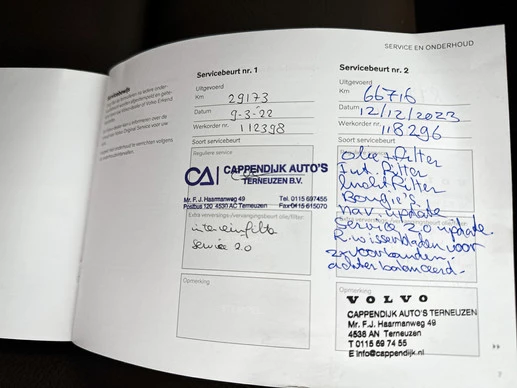 SERVICE EN ONDERHOUD
Servicebeurt nr. 1
Uitgevoerd
Km 29173
Datum 9-3-22
Werkorder nr. 112398
Soort servicebeurt
Reguliere service
CA CAPPENDIJK AUTO'S
TERNEUZEN B.V.
Mr. F.J. Haarmanweg 49 Tel. 0115 697455
Postbus 120 4530 AC Terneuzen Fax 0115 615070
Extra verversings-/vervangingsbeurt olie/filter:
interieurfilter
Service 2.0
Opmerking
Servicebeurt nr. 2
Uitgevoerd
Km 66716
Datum 12/12/2023
Werkorder nr. 118296
Soort servicebeurt
Olie + Filter
Int. Filter
Lucht Filter
Bougie's.
nav. update
Service 2.0 update.
R.wisserbladen voor
achter balanceerd.
Opmerking
VOLVO
CAPPENDIJK AUTO'S TERNEUZEN
Mr. F.J. Haarmanweg 49
4538 AN Terneuzen
T 0115 69 74 55
E info@cappendijk.nl